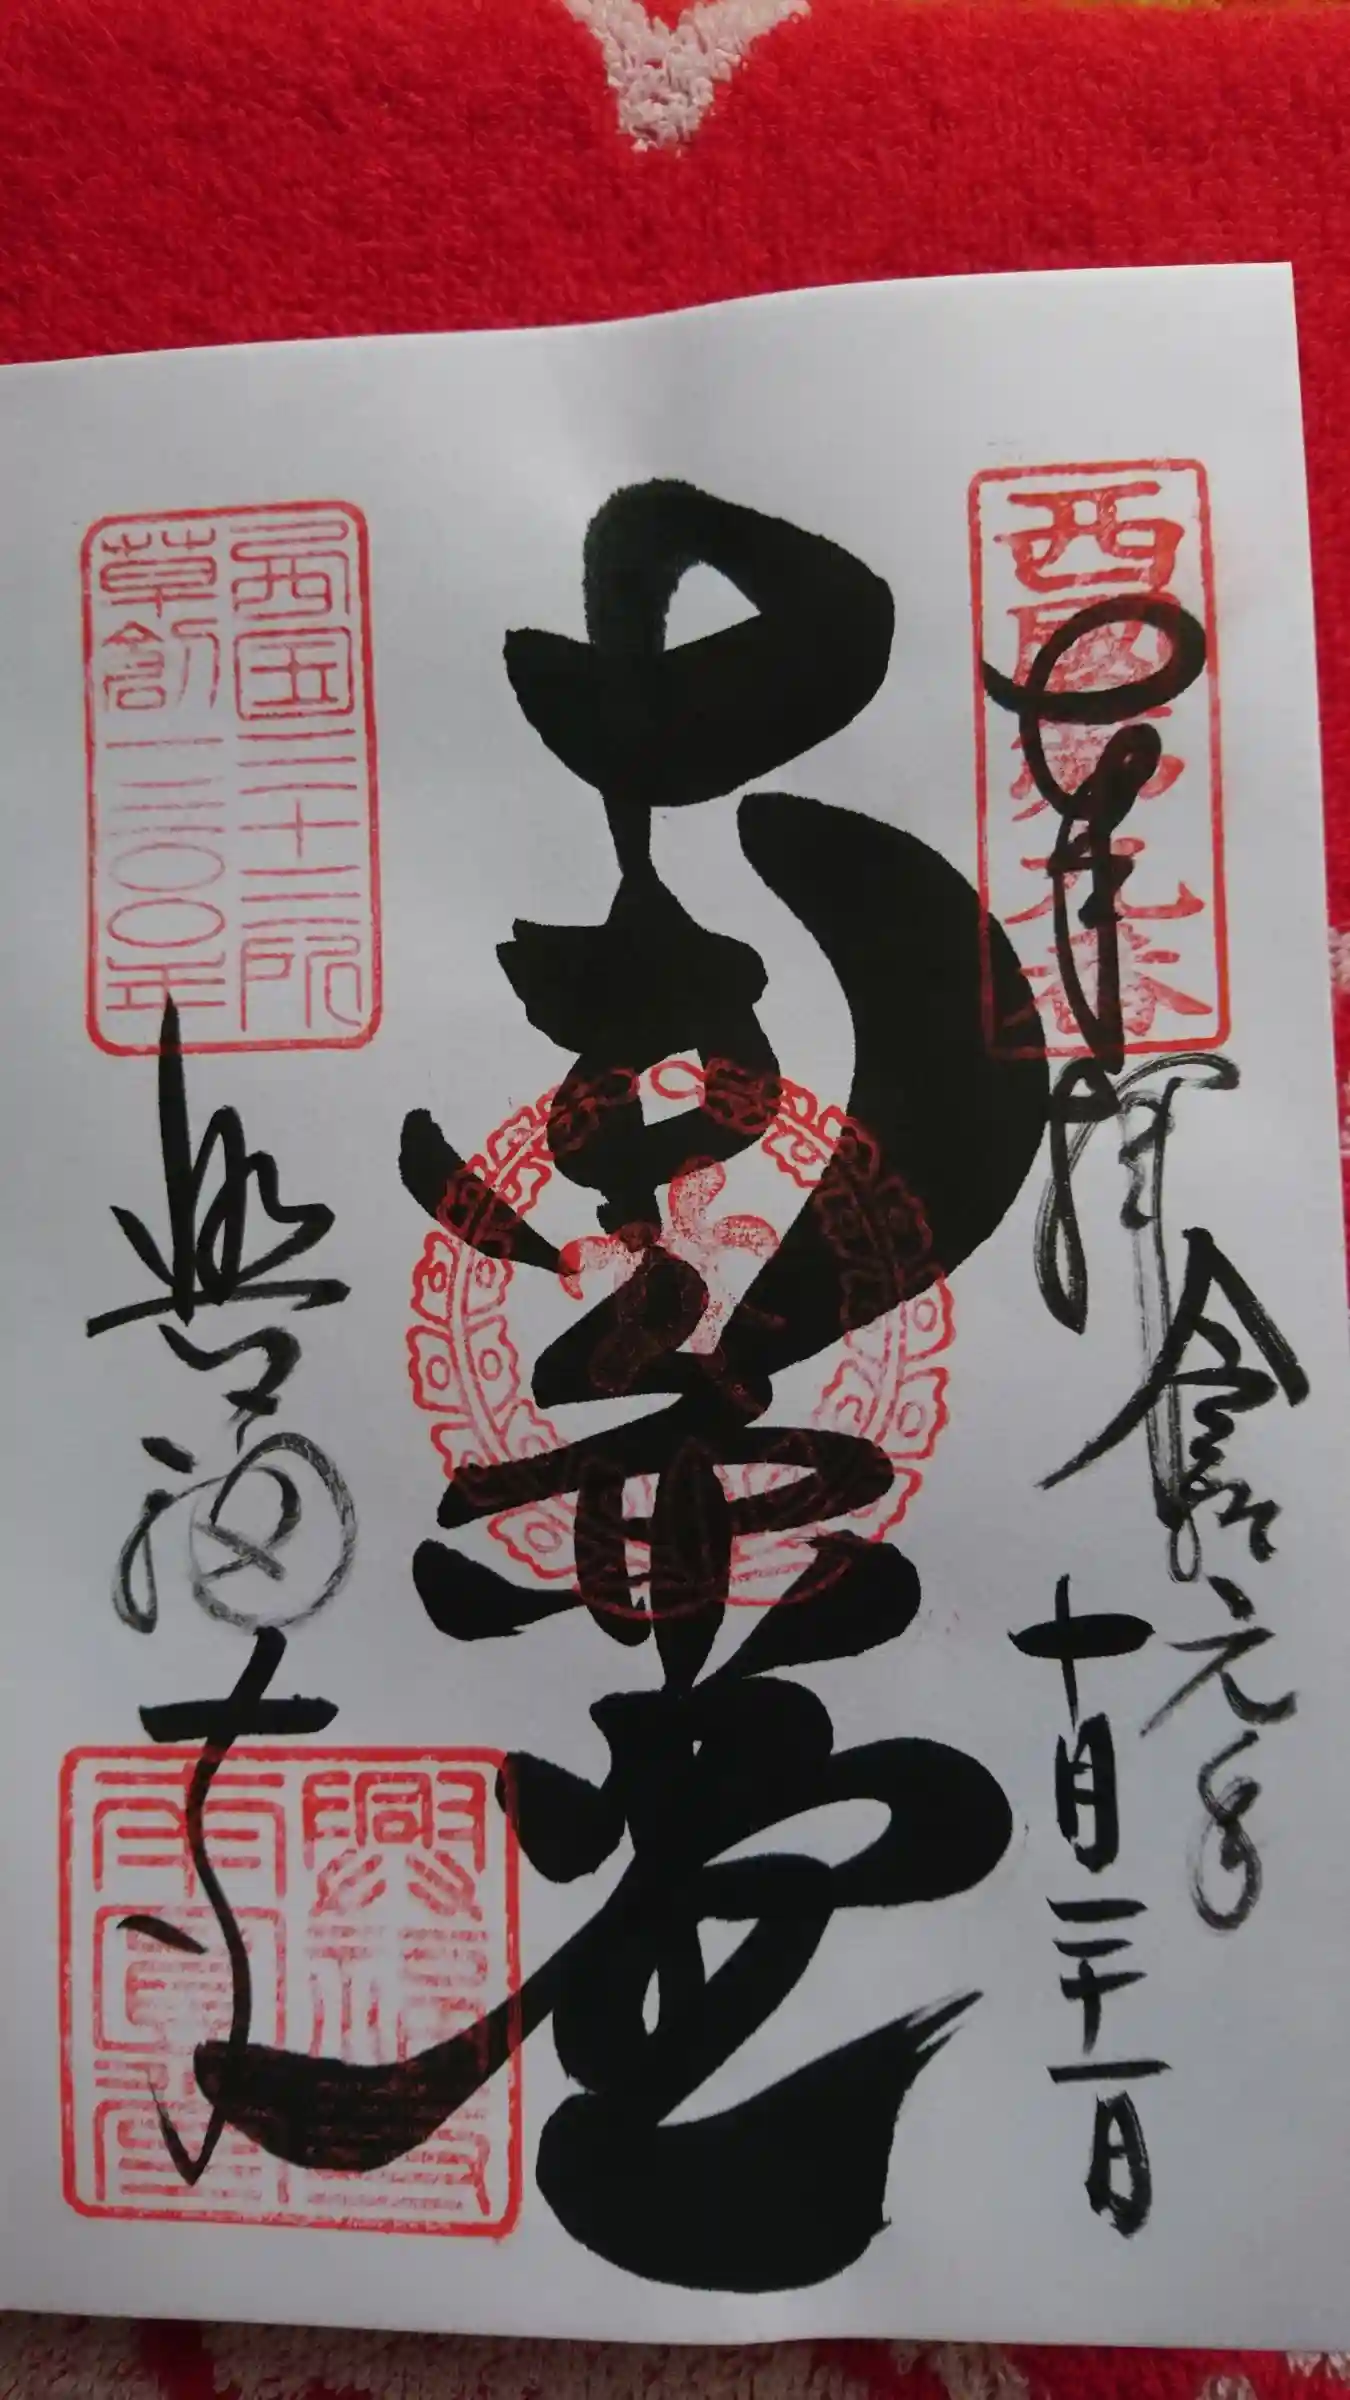 西國第九番
奉拝
令和元年
十月二十一日
南圓堂
西国三十三所
草創一三〇〇年
興福寺
興福寺
南圓堂